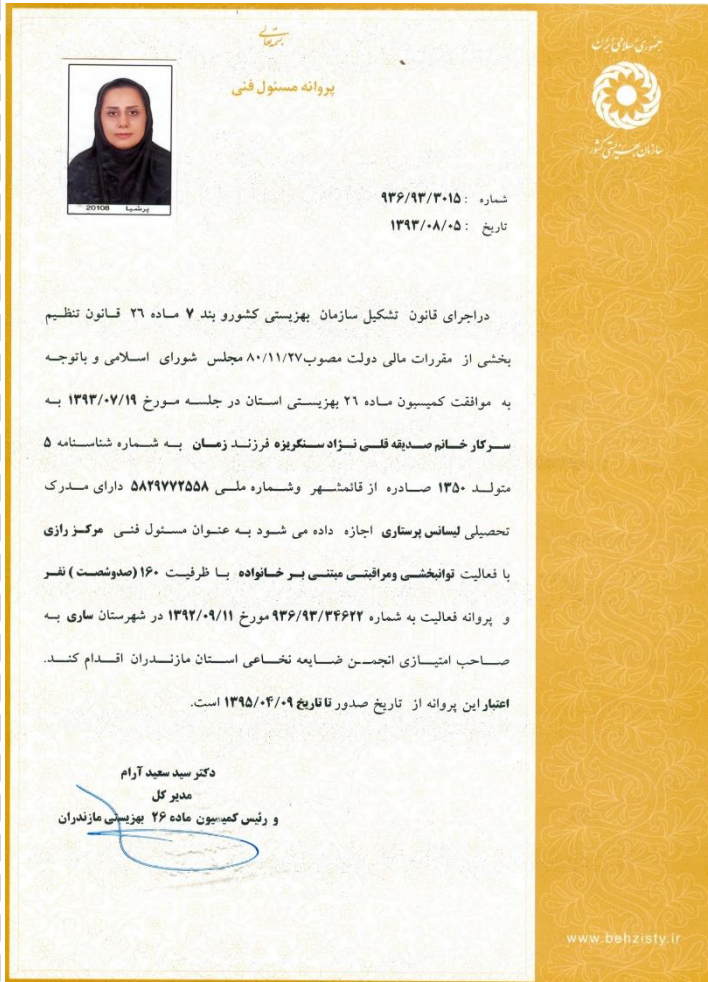 بسمه تعالی
جمهوری اسلامی ایران
سازمان بهزیستی کشور
پروانه مسئول فنی
20108 پرشیا
شماره : ۹۳۶/۹۳/۳۰۱۵
تاریخ : ۱۳۹۳/۰۸/۰۵
دراجرای قانون تشکیل سازمان بهزیستی کشورو بند ۷ ماده ۲۶ قانون تنظیم
بخشی از مقررات مالی دولت مصوب۸۰/۱۱/۲۷ مجلس شورای اسلامی و باتوجه
به موافقت کمیسیون ماده ۲۶ بهزیستی استان در جلسه مورخ ۱۳۹۳/۰۷/۱۹ به
سرکار خانم صدیقه قلی نژاد سنگریزه فرزند زمان به شماره شناسنامه ۵
متولد ۱۳۵۰ صادره از قائمشهر وشماره ملی ۵۸۲۹۷۷۲۵۵۸ دارای مدرک
تحصیلی لیسانس پرستاری اجازه داده می شود به عنوان مسئول فنی مرکز رازی
با فعالیت توانبخشی ومراقبتی مبتنی بر خانواده با ظرفیت ۱۶۰ (صدوشصت) نفر
و پروانه فعالیت به شماره ۹۳۶/۹۳/۳۴۶۲۲ مورخ ۱۳۹۲/۰۹/۱۱ در شهرستان ساری به
صاحب امتیازی انجمن ضایعه نخاعی استان مازندران اقدام کند.
اعتبار این پروانه از تاریخ صدور تا تاریخ ۱۳۹۵/۰۴/۰۹ است.
دکتر سید سعید آرام
مدیر کل
و رئیس کمیسیون ماده ۲۶ بهزیستی مازندران
www.behzisty.ir